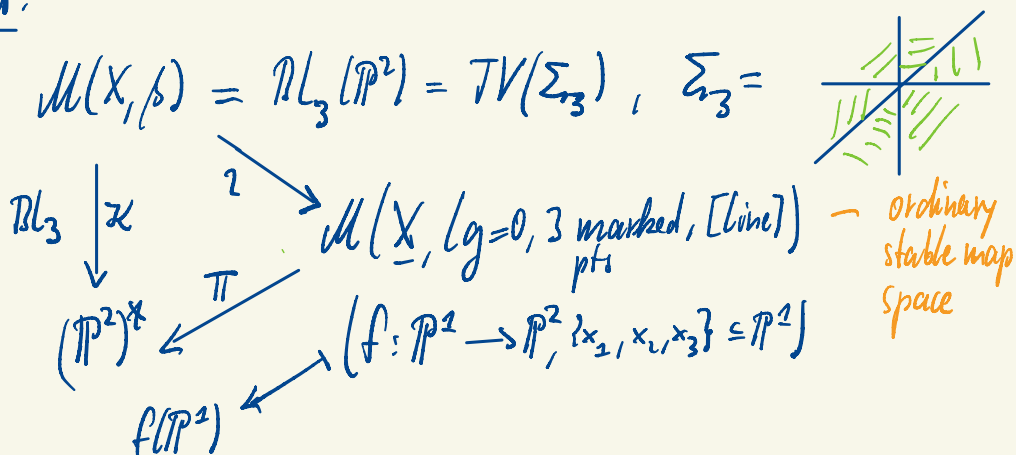 M(X, β) = Bl₃(P²) = TV(Σ₃), Σ₃ =
2
Bl₃ ϰ
M(X, (g=0, 3 marked pts, [line]) – ordinary stable map space
π
(P²)*
(f: P¹ → P², {x₁, x₂, x₃} ⊆ P¹)
f(P¹)